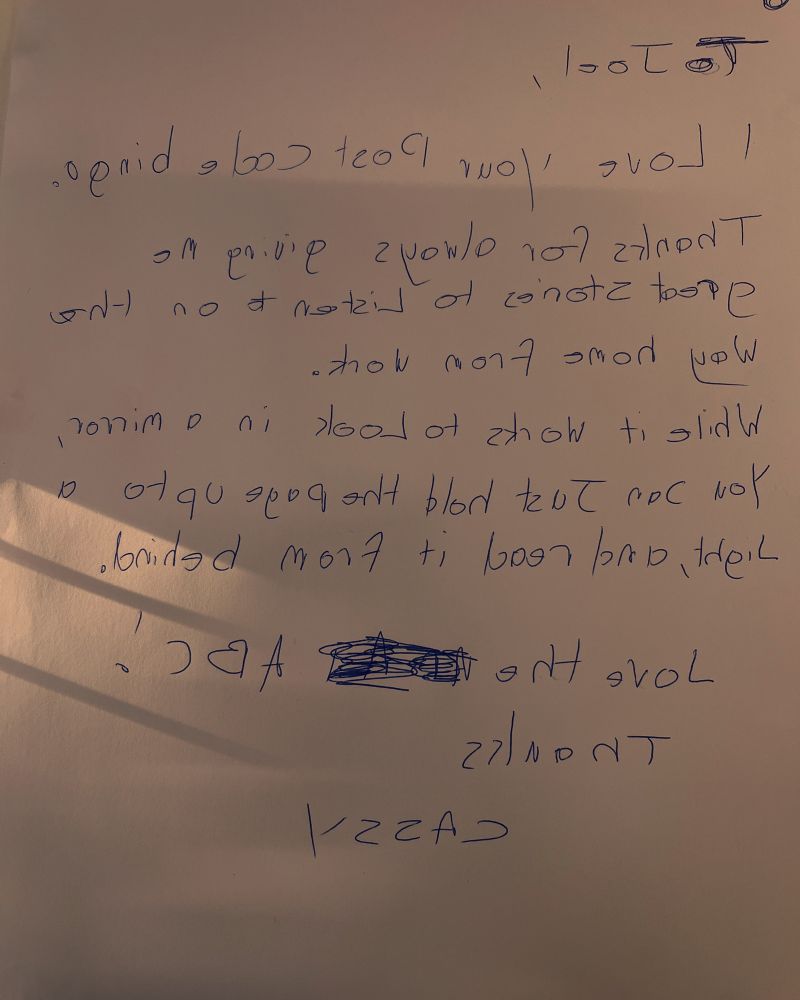 To Joel,
I Love your Post code bingo.
Thanks for always giving me
great stories to listen to on the
way home from work.
While it works to look in a mirror,
You can Just hold the page up to a
Light, and read it from behind.
Love the ABC!
Thanks
CASSY